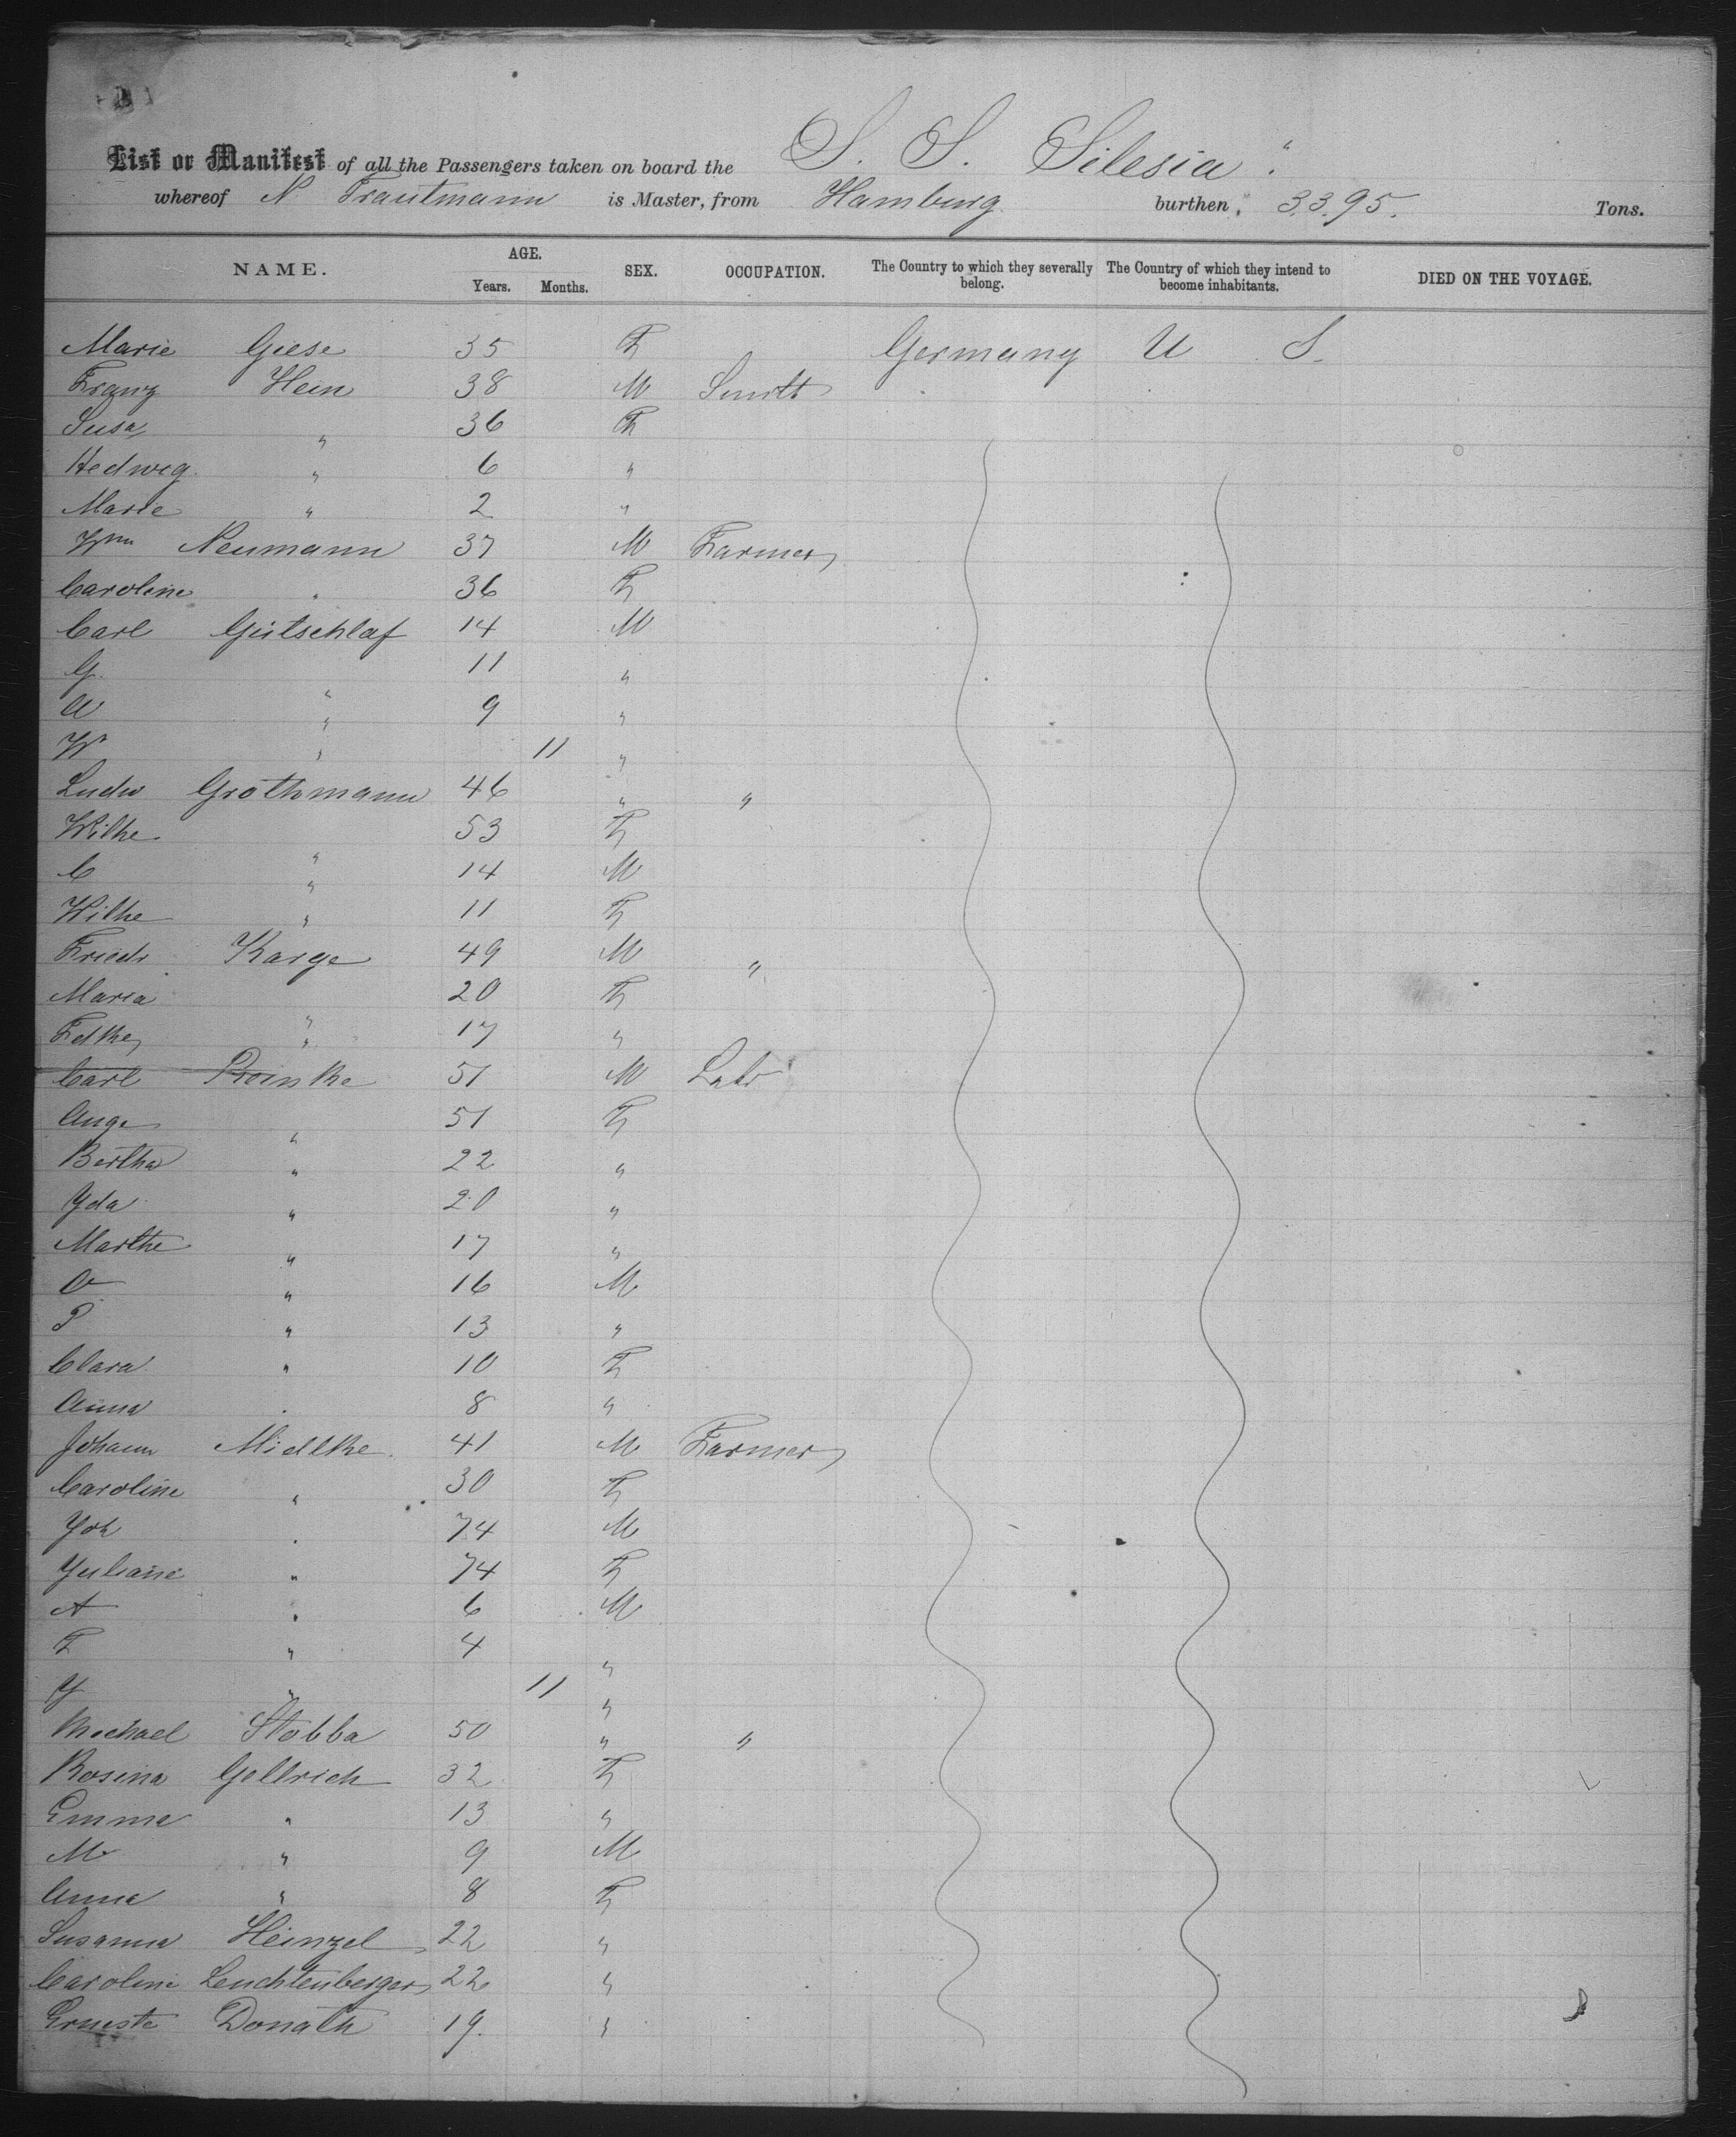 List or Manifest of all the Passengers taken on board the S. S. Silesia.
whereof N Trautmann is Master, from Hamburg burthen, 3395. Tons.
NAME. AGE. Years. Months. SEX. OCCUPATION. The Country to which they severally belong. The Country of which they intend to become inhabitants. DIED ON THE VOYAGE.
Marie Giese 35 F Germany U S.
Franz Hein 38 M Smith
Susa " 36 F
Hedwig " 6 "
Marie " 2 "
Wm Neumann 37 M Farmer
Caroline " 36 F
Carl Gütschlaf 14 M
G. " 11 "
A " 9 "
W " 11 "
Ludw Grothmann 46 " "
Wilhe " 53 F
C " 14 M
Wilhe " 11 F
Friedr Karge 49 M "
Maria " 20 F
" 17 "
Carl Reinke 51 M Labr
Auge " 51 F
Bertha " 22 "
Yda " 20 "
Marthe " 17 "
O " 16 M
P " 13 "
Clara " 10 F
Anna " 8 "
Johann Midlke 41 M Farmer
Caroline " 30 F
Joh " 74 M
Juliane " 74 F
A " 6 M
F " 4 "
J " 11 "
Michael Stobba 50 " "
Rosina Gellrich 32 F
Emma " 13 "
M " 9 M
Anna " 8 F
Susanna Heinzel 22 "
Caroline Leuchtenberger 22 "
Erneste Donath 19. "